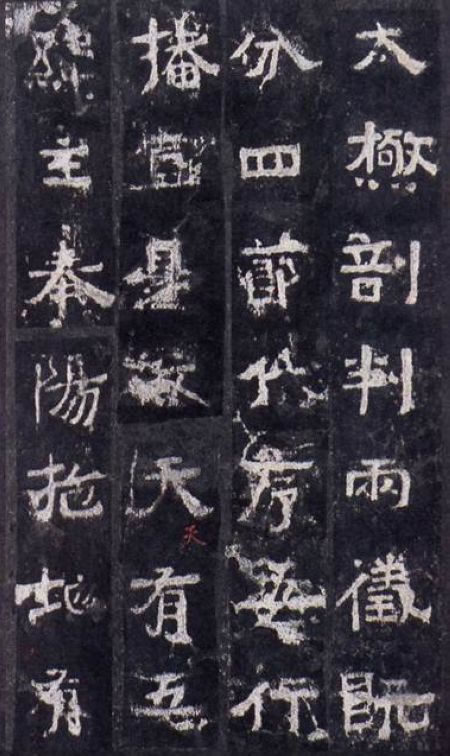 太極剖判兩徵既
分四節代序五行
播宣是故天有五
緯主奉陽施地有
天